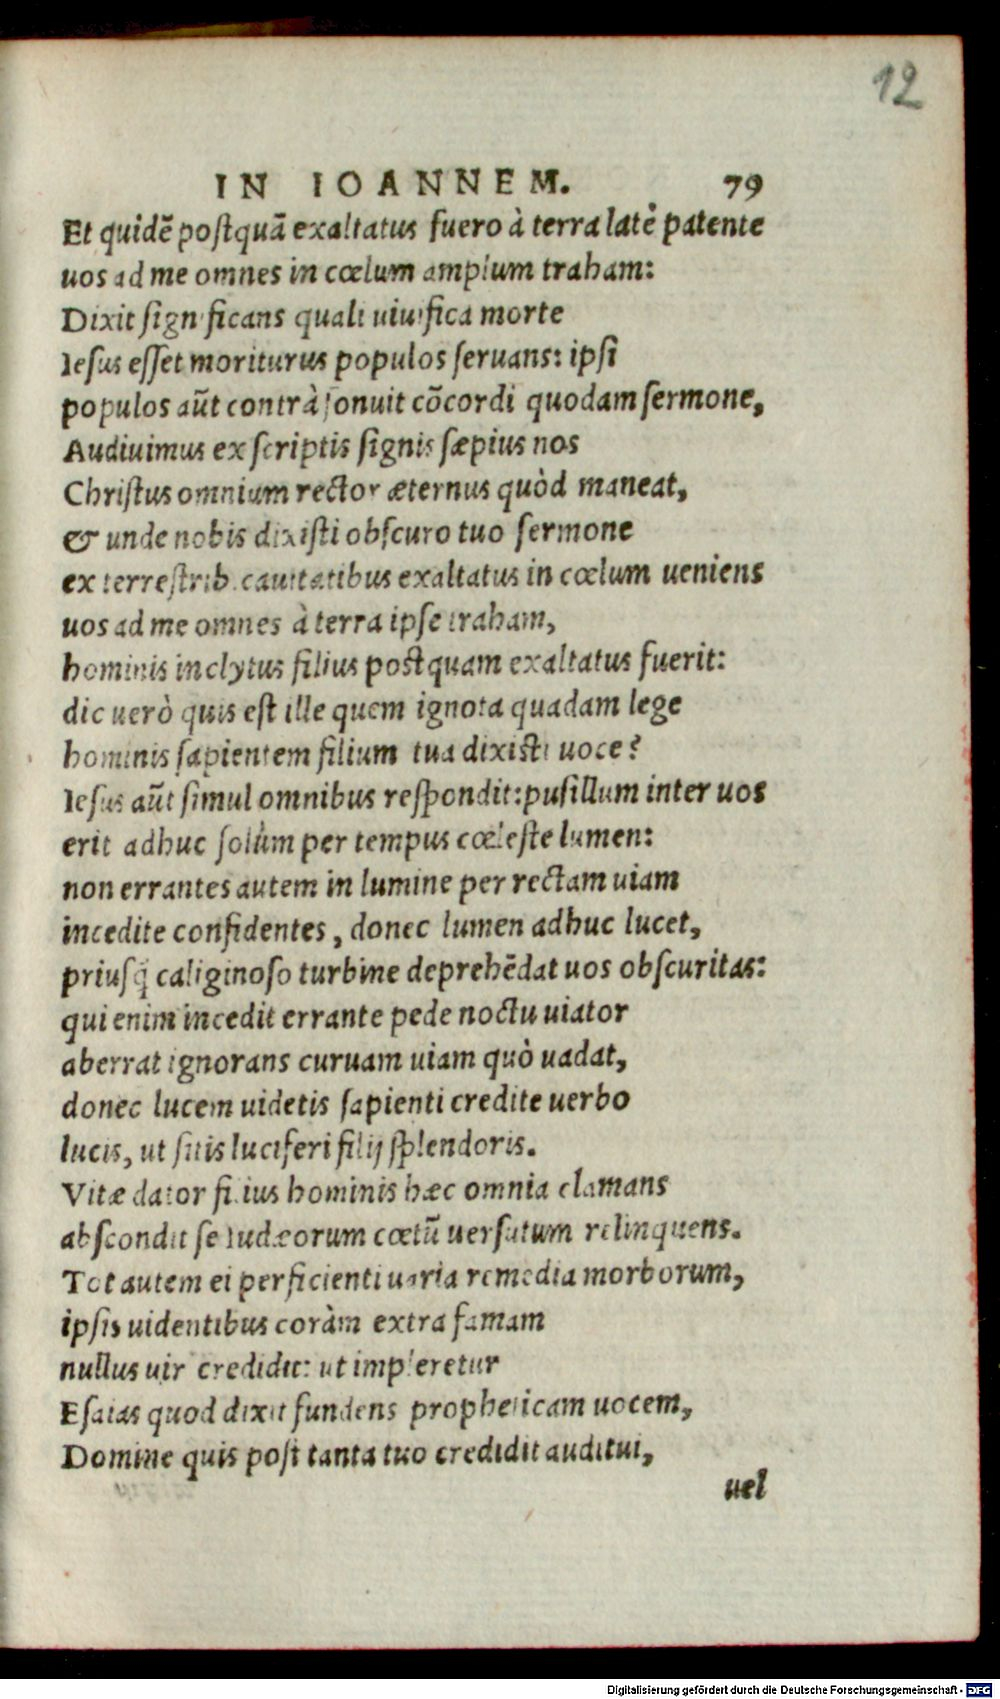 12
IN IOANNEM. 79
Et quidē postquā exaltatus fuero à terra latè patente
uos ad me omnes in cœlum amplum traham:
Dixit significans quali uiuifica morte
Iesus esset moriturus populos seruans: ipsi
populos aūt contrà sonuit cōcordi quodam sermone,
Audiuimus ex scriptis signis sæpius nos
Christus omnium rector æternus quòd maneat,
& unde nobis dixisti obscuro tuo sermone
ex terrestrib. cauitatibus exaltatus in cœlum ueniens
uos ad me omnes à terra ipse traham,
hominis inclytus filius postquam exaltatus fuerit:
dic uerò quis est ille quem ignota quadam lege
hominis sapientem filium tua dixisti uoce?
Iesus aūt simul omnibus respondit: pusillum inter uos
erit adhuc solùm per tempus cœleste lumen:
non errantes autem in lumine per rectam uiam
incedite confidentes, donec lumen adhuc lucet,
priusq̃ caliginoso turbine deprehēdat uos obscuritas:
qui enim incedit errante pede noctu uiator
aberrat ignorans curuam uiam quò uadat,
donec lucem uidetis sapienti credite uerbo
lucis, ut sitis luciferi filij splendoris.
Vitæ dator filius hominis hæc omnia clamans
abscondit se Iudæorum cœtū uersutum relinquens.
Tot autem ei perficienti uaria remedia morborum,
ipsis uidentibus coràm extra famam
nullus uir credidit: ut impleretur
Esaias quod dixit fundens propheticam uocem,
Domine quis post tanta tuo credidit auditui,
uel
Digitalisierung gefördert durch die Deutsche Forschungsgemeinschaft - DFG